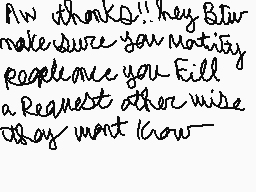 Aw thanks!! hey Btw
make sure you notify
people once you fill
a Request other wise
they wont know